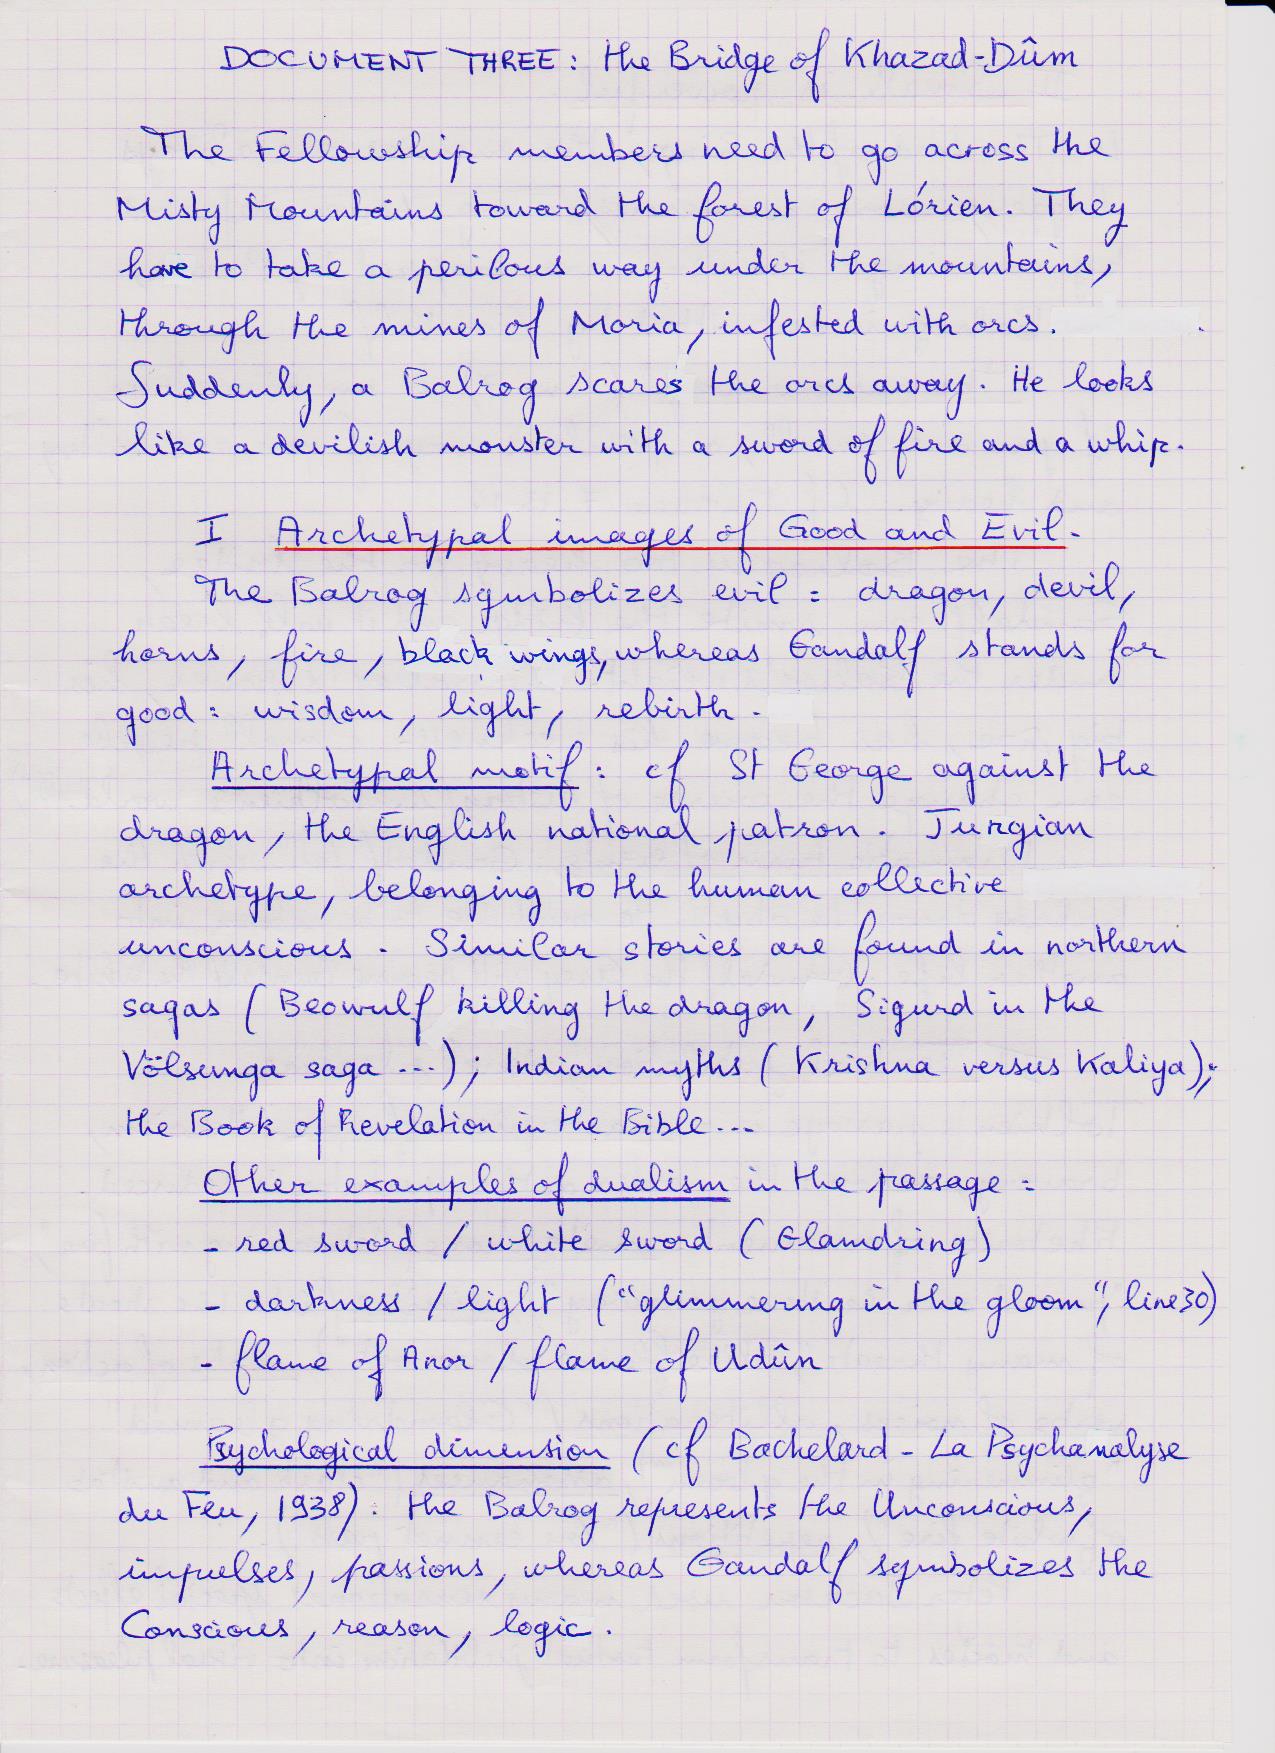 DOCUMENT THREE: the Bridge of Khazad-Dûm
The Fellowship members need to go across the
Misty Mountains toward the forest of Lórien. They
have to take a perilous way under the mountains,
through the mines of Moria, infested with orcs.
Suddenly, a Balrog scares the orcs away. He looks
like a devilish monster with a sword of fire and a whip.
I Archetypal images of Good and Evil.
The Balrog symbolizes evil: dragon, devil,
horns, fire, black wings, whereas Gandalf stands for
good: wisdom, light, rebirth.
Archetypal motif: cf St George against the
dragon, the English national patron. Jungian
archetype, belonging to the human collective
unconscious. Similar stories are found in northern
sagas (Beowulf killing the dragon, Sigurd in the
Völsunga saga ...); Indian myths (Krishna versus Kaliya);
the Book of Revelation in the Bible...
Other examples of dualism in the passage:
- red sword / white sword (Glamdring)
- darkness / light ("glimmering in the gloom", line 30)
- flame of Anor / flame of Udûn
Psychological dimension (cf Bachelard - La Psychanalyse
du Feu, 1938): the Balrog represents the Unconscious,
impulses, passions, whereas Gandalf symbolizes the
Conscious, reason, logic.